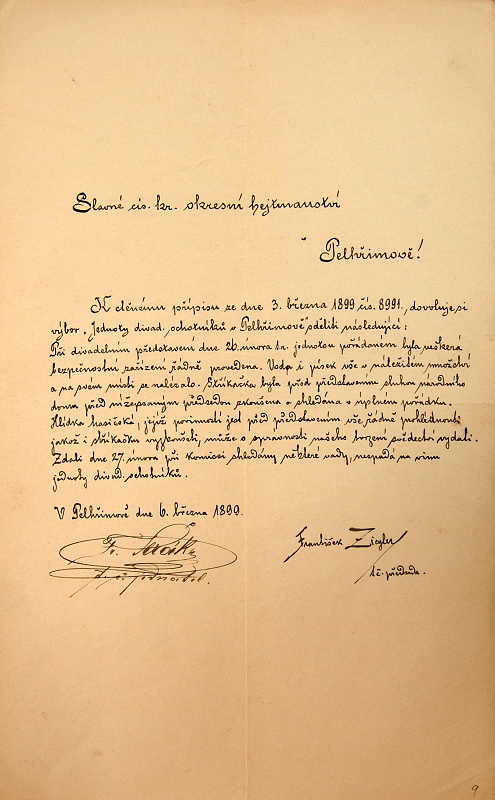 Slavné cís. kr. okresní hejtmanství
v Pelhřimově!
K ctěnému přípisu ze dne 3. března 1899 čís. 8991, dovoluje si
výbor „Jednoty divad. ochotníků v Pelhřimově„ sděliti následující:
Při divadelním představení dne 26. února t.r. jednotou pořádaném byla veškera
bezpečnostní zařízení řádně provedena. Voda i písek vše v náležitém množství
a na svém místě se nalezalo. Stříkačka byla před představením sluhou národního
domu před nížepsaným předsedou zkoušena a shledána v úplném pořádku.
Hlídka hasičská, jejíž povinností jest před představením vše řádně prohlédnouti
jakož i stříkačku vyzkoušeti, může o správnosti našeho tvrzení svědectví vydati.
Zdali dne 27. února při komisi shledány některé vady, nespadá na vinu
jednoty divad. ochotníků.
V Pelhřimově dne 6. března 1899.
Fr.
František Ziegler
t. č. jednatel.
t.č. předseda.
9